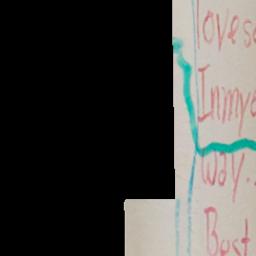 loves
In my
way..
Best